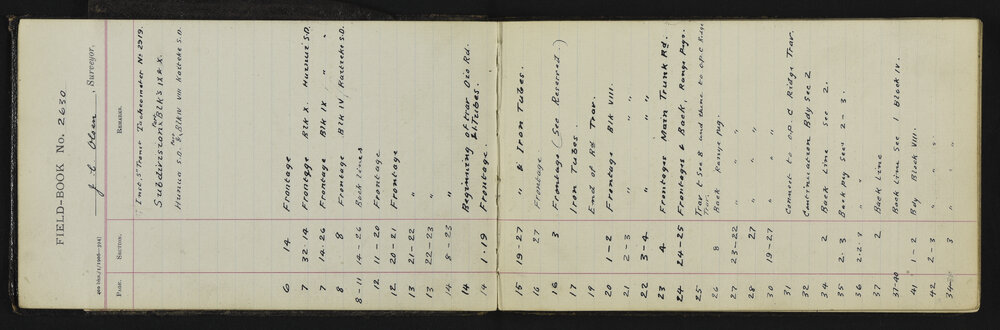 FIELD-BOOK No. 2630
J C Olsen, Surveyor.
400 bks./1/1900—391]
PAGE. SECTION. REMARKS.
Inst. 5" Transit Tacheometer No 2919.
Subdivision Blk's IX & X.
Hunua S.D. & Blk IV
6 14 Frontage
7 32-14 Frontage Blk X. Hunua S.D.
7 14-26 Frontage Blk IX " "
8 8 Frontage Blk IV,
8-11 14-26 Back lines
12 11-20 Frontage
12 20-21 Frontage
13 21-22 "
13 22-23 "
14 8-23 "
14 Beginning of trav Rd.
& I. Tubes.
14 1-19 Frontage.
15 19-27 " & Iron Tubes.
16 27 Frontage
16 3 Frontage (See Reserved.)
17 Iron Tubes.
19 End of Rd Trav.
20 1-2 Frontage Blk VIII.
21 2-3 " "
22 3-4 " "
23 4 Frontages Main Trunk Rd.
24 24-25 Frontages & Back, Range Pegs.
25 Trav to Sec 8 and thence to op. C Ridge
Trav.
26 8 Back Range Peg.
27 23-22 " "
28 27 " "
30 19-27 " "
31 Connect to op. C Ridge Trav.
32 Continuation Bdy Sec 2
34 2 Back Line Sec 2.
35 2-3 Back peg Secs 2-3.
36 2-2-3 " "
37 2 Back Line
37-40 Back Line Sec 1 Block IV.
41 1-2 Bdy Block VIII.
42 2-3 " "
3 " "